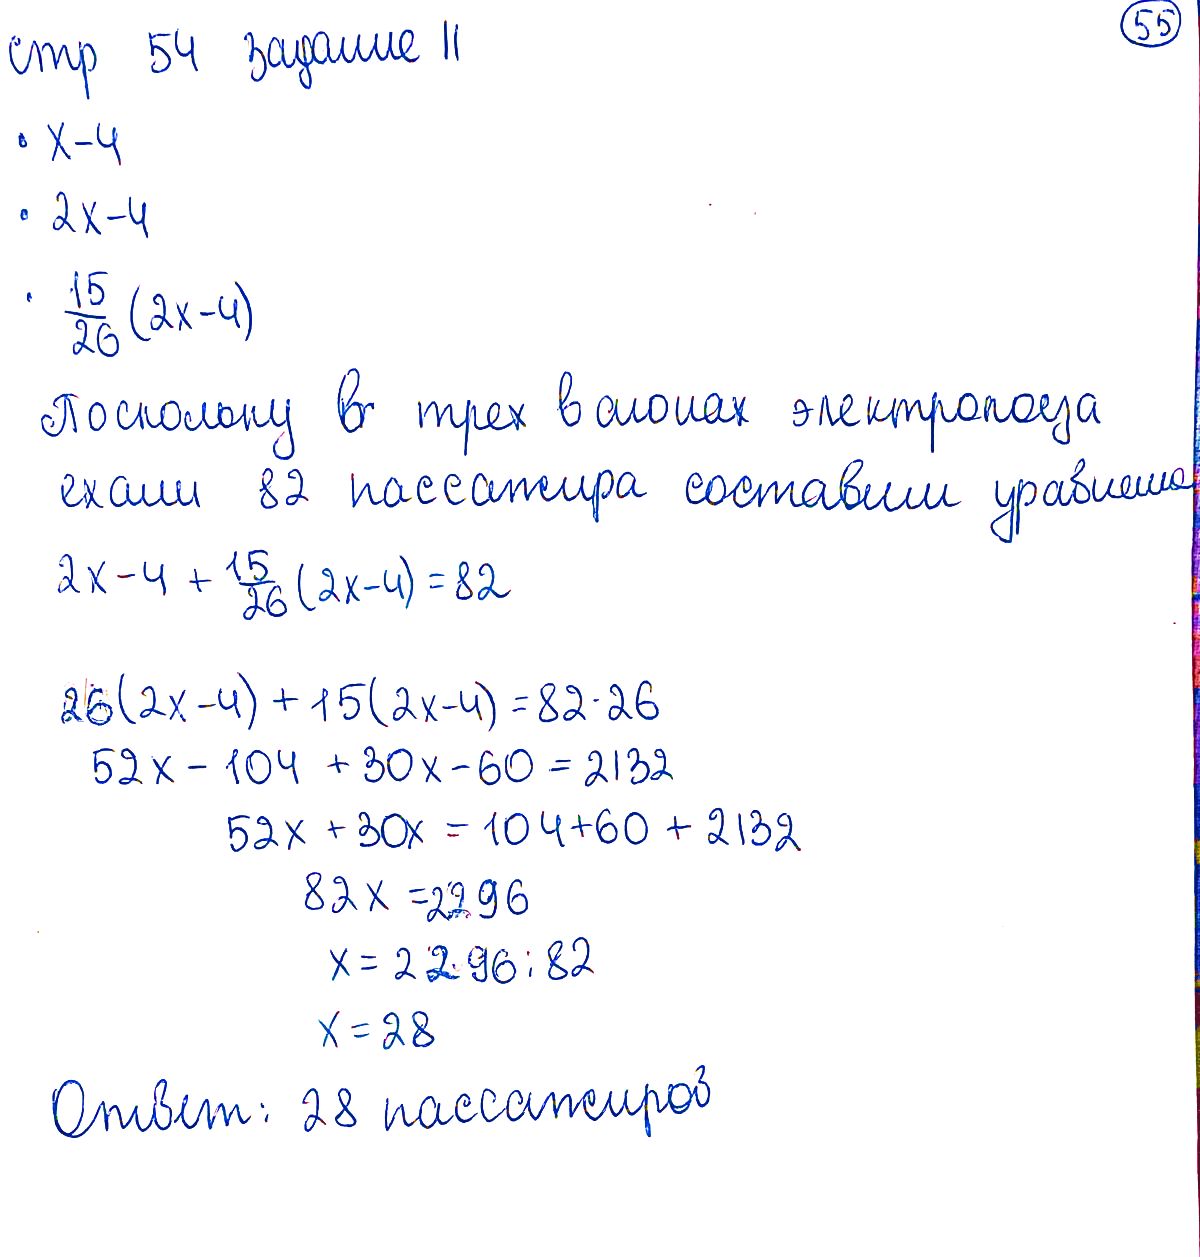 55
стр 54 задание 11
• x-4
• 2x-4
• 15/26 (2x-4)
Поскольку в трех вагонах электропоезда
ехали 82 пассажира составим уравнение
2x-4 + 15/26 (2x-4) = 82
26(2x-4) + 15(2x-4) = 82·26
52x - 104 + 30x - 60 = 2132
52x + 30x = 104+60 + 2132
82x = 2296
x = 2296 : 82
x = 28
Ответ: 28 пассажиров